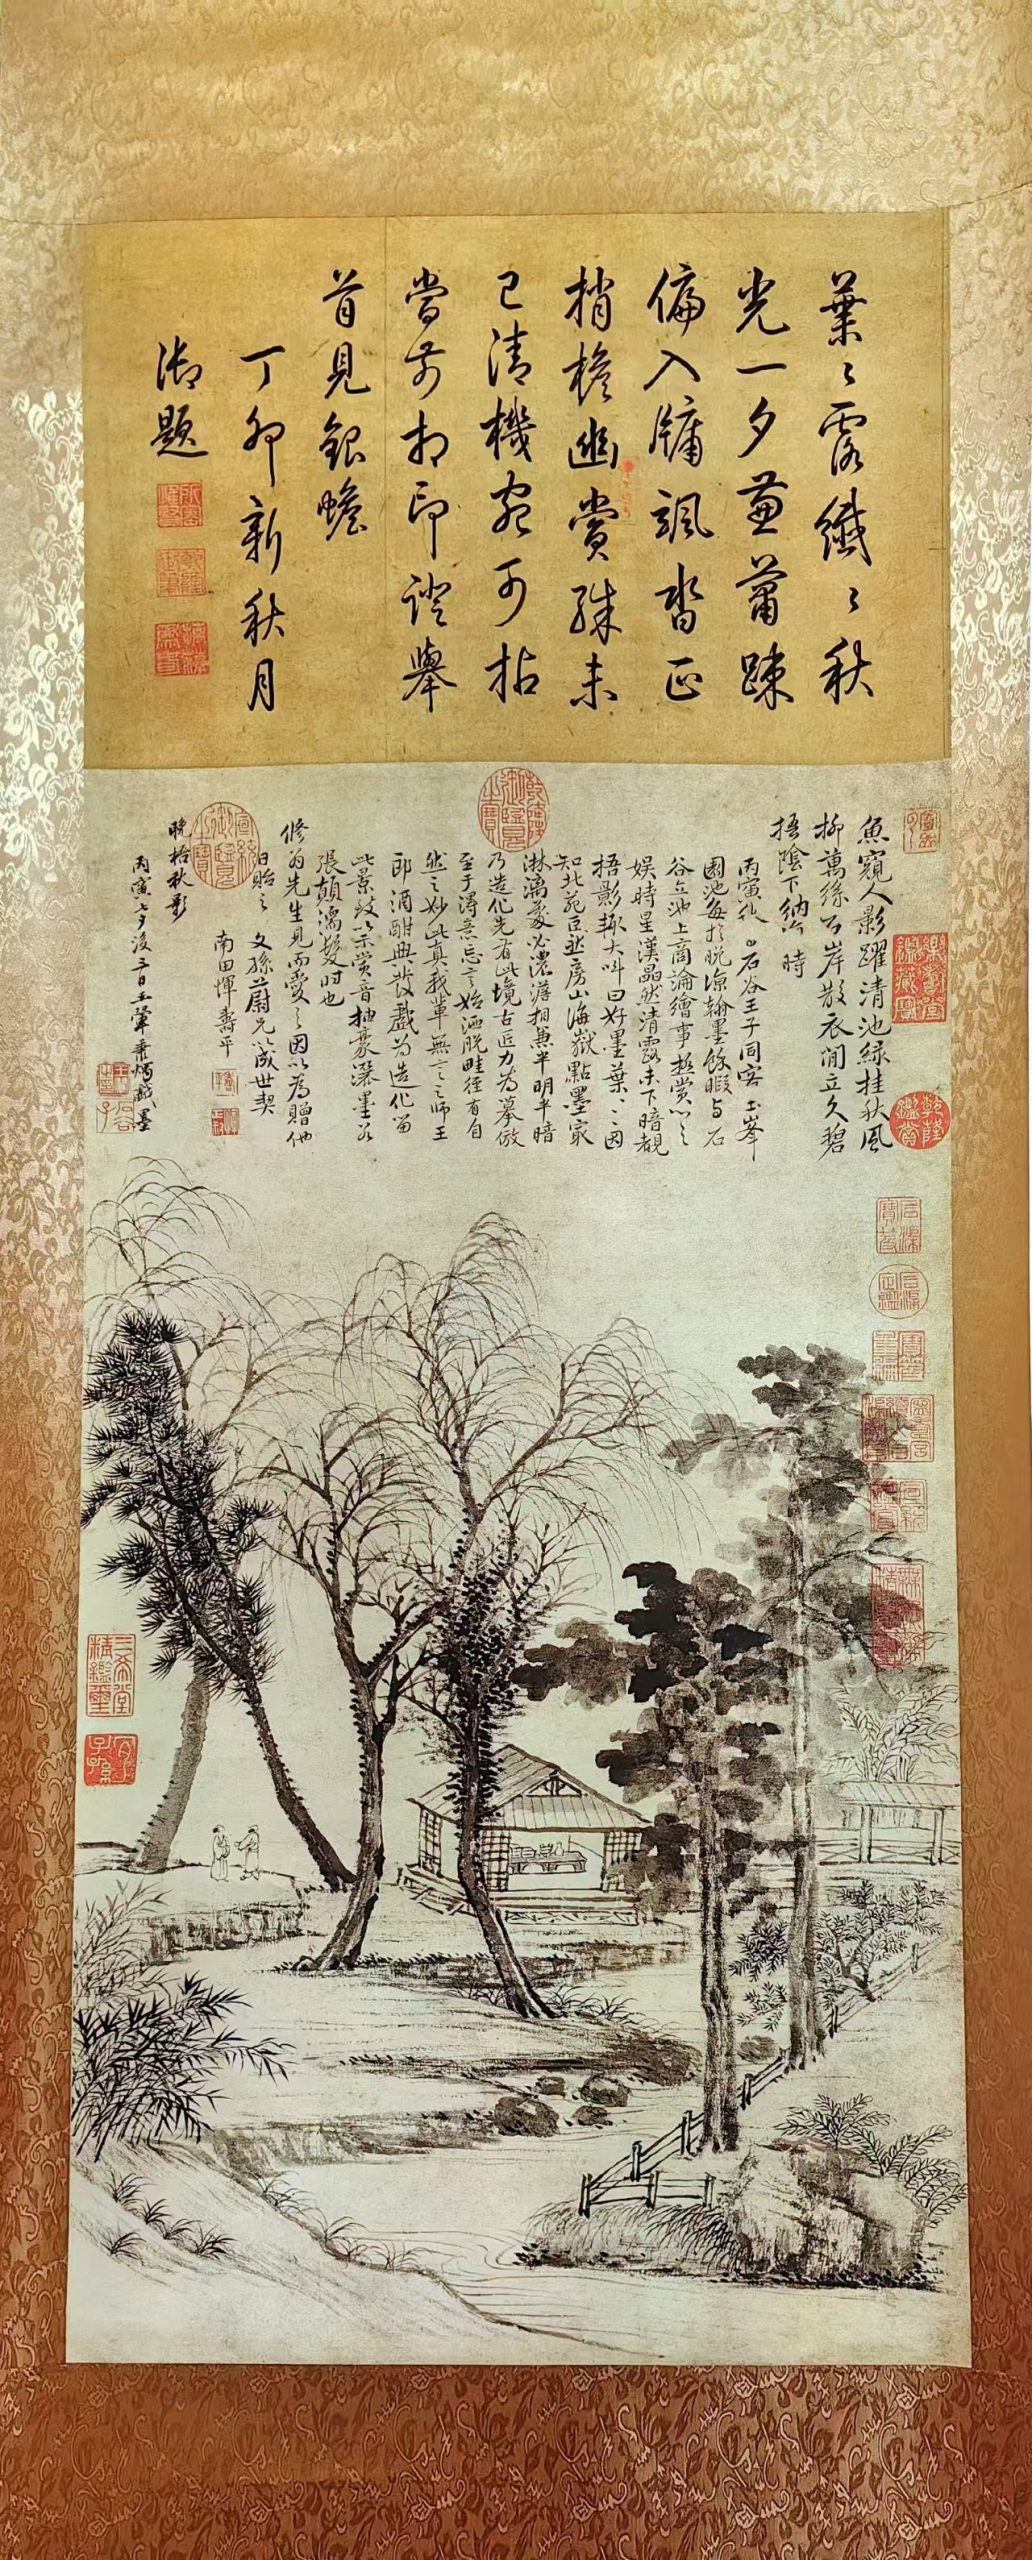 葉〻露纖〻秋
光一夕蕭疎
偏入牖颯沓正
梢檐幽賞殊未
已清機宛可拈
當前相印證舉
首見銀蟾
丁卯新秋月
御題
魚窺人影躍清池綠挂秋風
柳萬絲石岸散衣閒立久碧
梧陰下納涼時
丙寅秋日石谷王子同客玉峯
園池每於晚涼翰墨餘暇与石
谷立池上商論繪事極賞心之
娛時星漢晶然清露未下暗覩
梧影輒大叫曰好墨葉〻因
知北苑巨然房山海嶽點墨最
淋漓處必濃澹相兼半明半暗
乃造化先有此境古匠力為摹倣
至于得意忘言始洒脫畦徑有自
然之妙此真我輩無言之師王
郎酒酣興發戲為造化留
此景致以示賞音抽豪灑墨若
張顛濡髮時也
修翁先生見而愛之因以為贈他
日貽之文孫蔚兄以誠世契
南田惲壽平
晚梧秋影
丙寅七夕後三日王翬秉燭戲墨
乾隆御覽之寶
宣統御覽之寶
乾隆鑑賞
石渠寶笈
三希堂精鑑璽
宜子孫